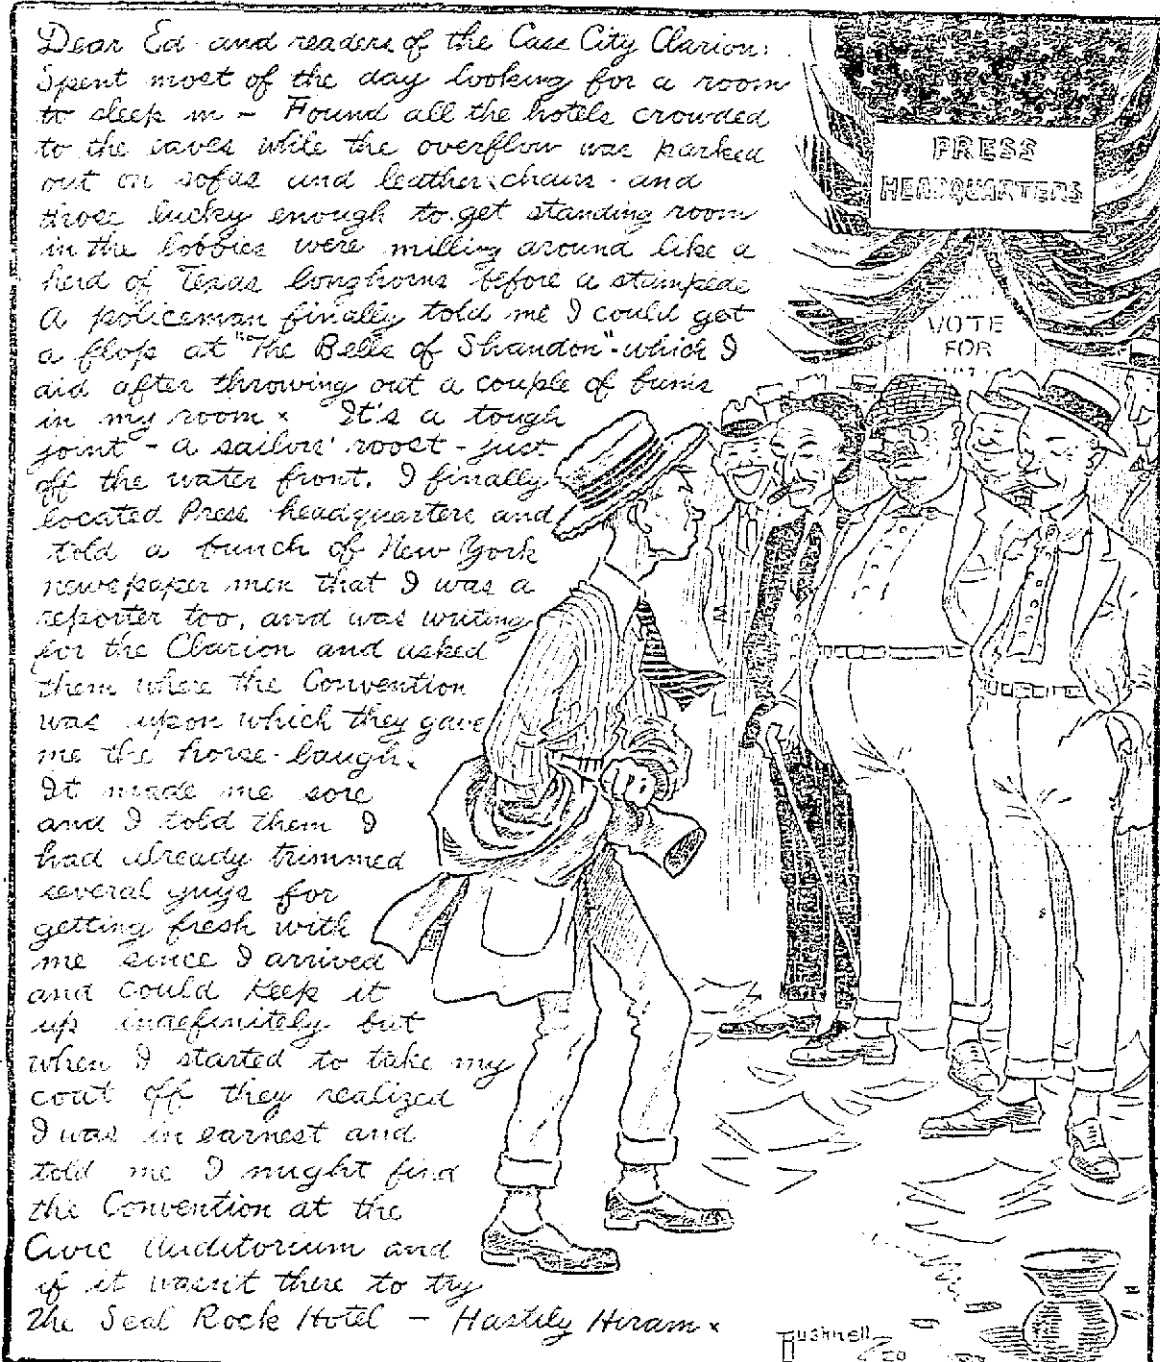 Dear Ed and readers of the Case City Clarion:
Spent most of the day looking for a room
to sleep in - Found all the hotels crowded
to the eaves while the overflow was parked
out on sofas and leather chairs - and
those lucky enough to get standing room
in the lobbies were milling around like a
herd of Texas longhorns before a stampede
A policeman finally told me I could get
a flop at "The Bells of Shandon" - which I
did after throwing out a couple of bums
in my room x It's a tough
joint - a sailors' roost - just
off the water front. I finally
located Press headquarters and
told a bunch of New York
newspaper men that I was a
reporter too, and was writing
for the Clarion and asked
them where the Convention
was upon which they gave
me the horse-laugh.
It made me sore
and I told them I
had already trimmed
several guys for
getting fresh with
me since I arrived
and could keep it
up indefinitely but
when I started to take my
coat off they realized
I was in earnest and
told me I might find
the Convention at the
Civic Auditorium and
if it wasn't there to try
the Seal Rock Hotel - Hastily Hiram x
PRESS
HEADQUARTERS
VOTE
FOR
Bushnell
20